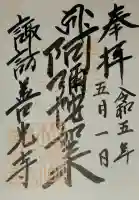 奉拝
令和五年
五月一日
阿彌陀如来
諏訪善光寺